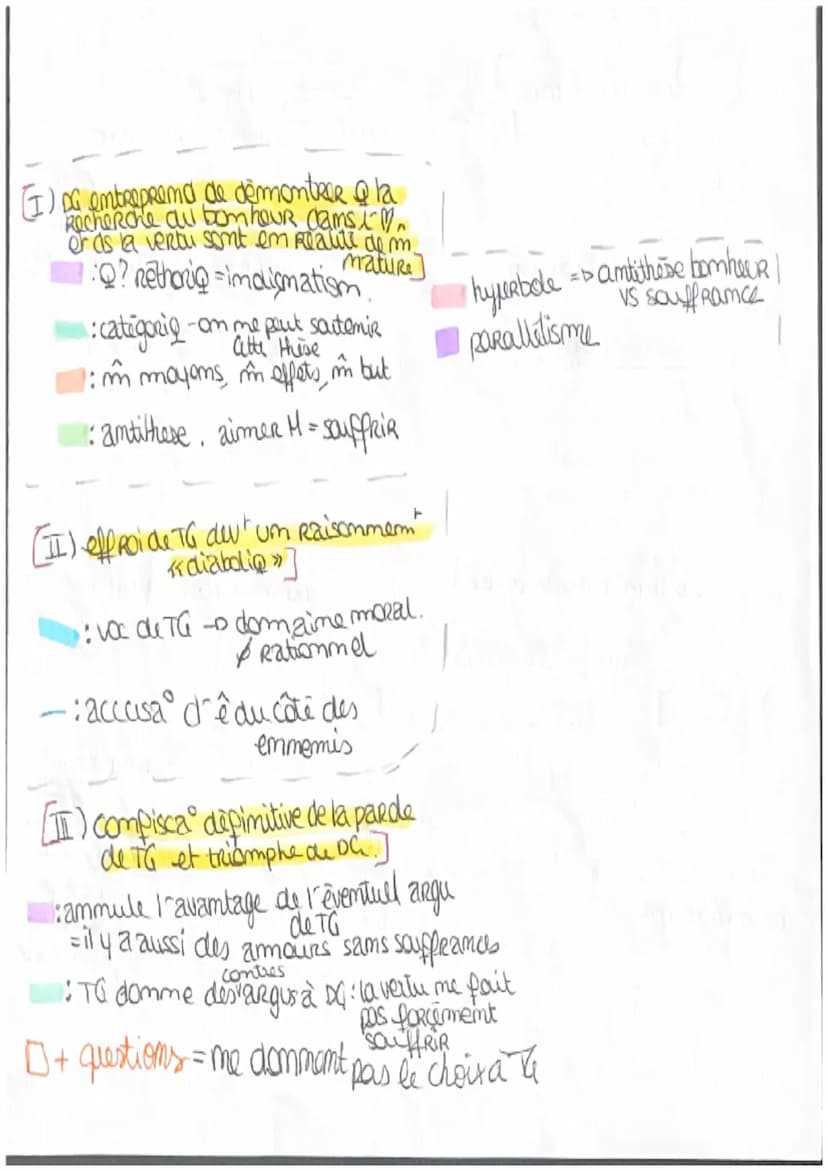 [I) DG entreprend de démontrer Q la
recherche du bonheur dans l'♡
et ds la vertu sont en réalité de m̂
nature]
: Q? réthoriq = indignation.
: catégoriq - on ne peut soutenir
cette thèse
: m̂ moyens, m̂ effets, m̂ but
: antithèse. aimer M = souffrir
hyperbole => antithèse bonheur
vs souffrance
parallélisme
[II) effroi de TG devt un raisonnemt
« diaboliq »]
: voc de TG -> domaine moral.
≠ rationnel
- : accusa° d'ê du côté des
ennemis
[III) confisca° définitive de la parole
de TG et triomphe de DG.]
: annule l'avantage de l'éventuel argu
de TG
= il y a aussi des amours sans souffrances
contres
: TG donne des argus à DG : la vertu ne fait
pas forcément
souffrir
□ + questions = ne donnant pas le choix à TG